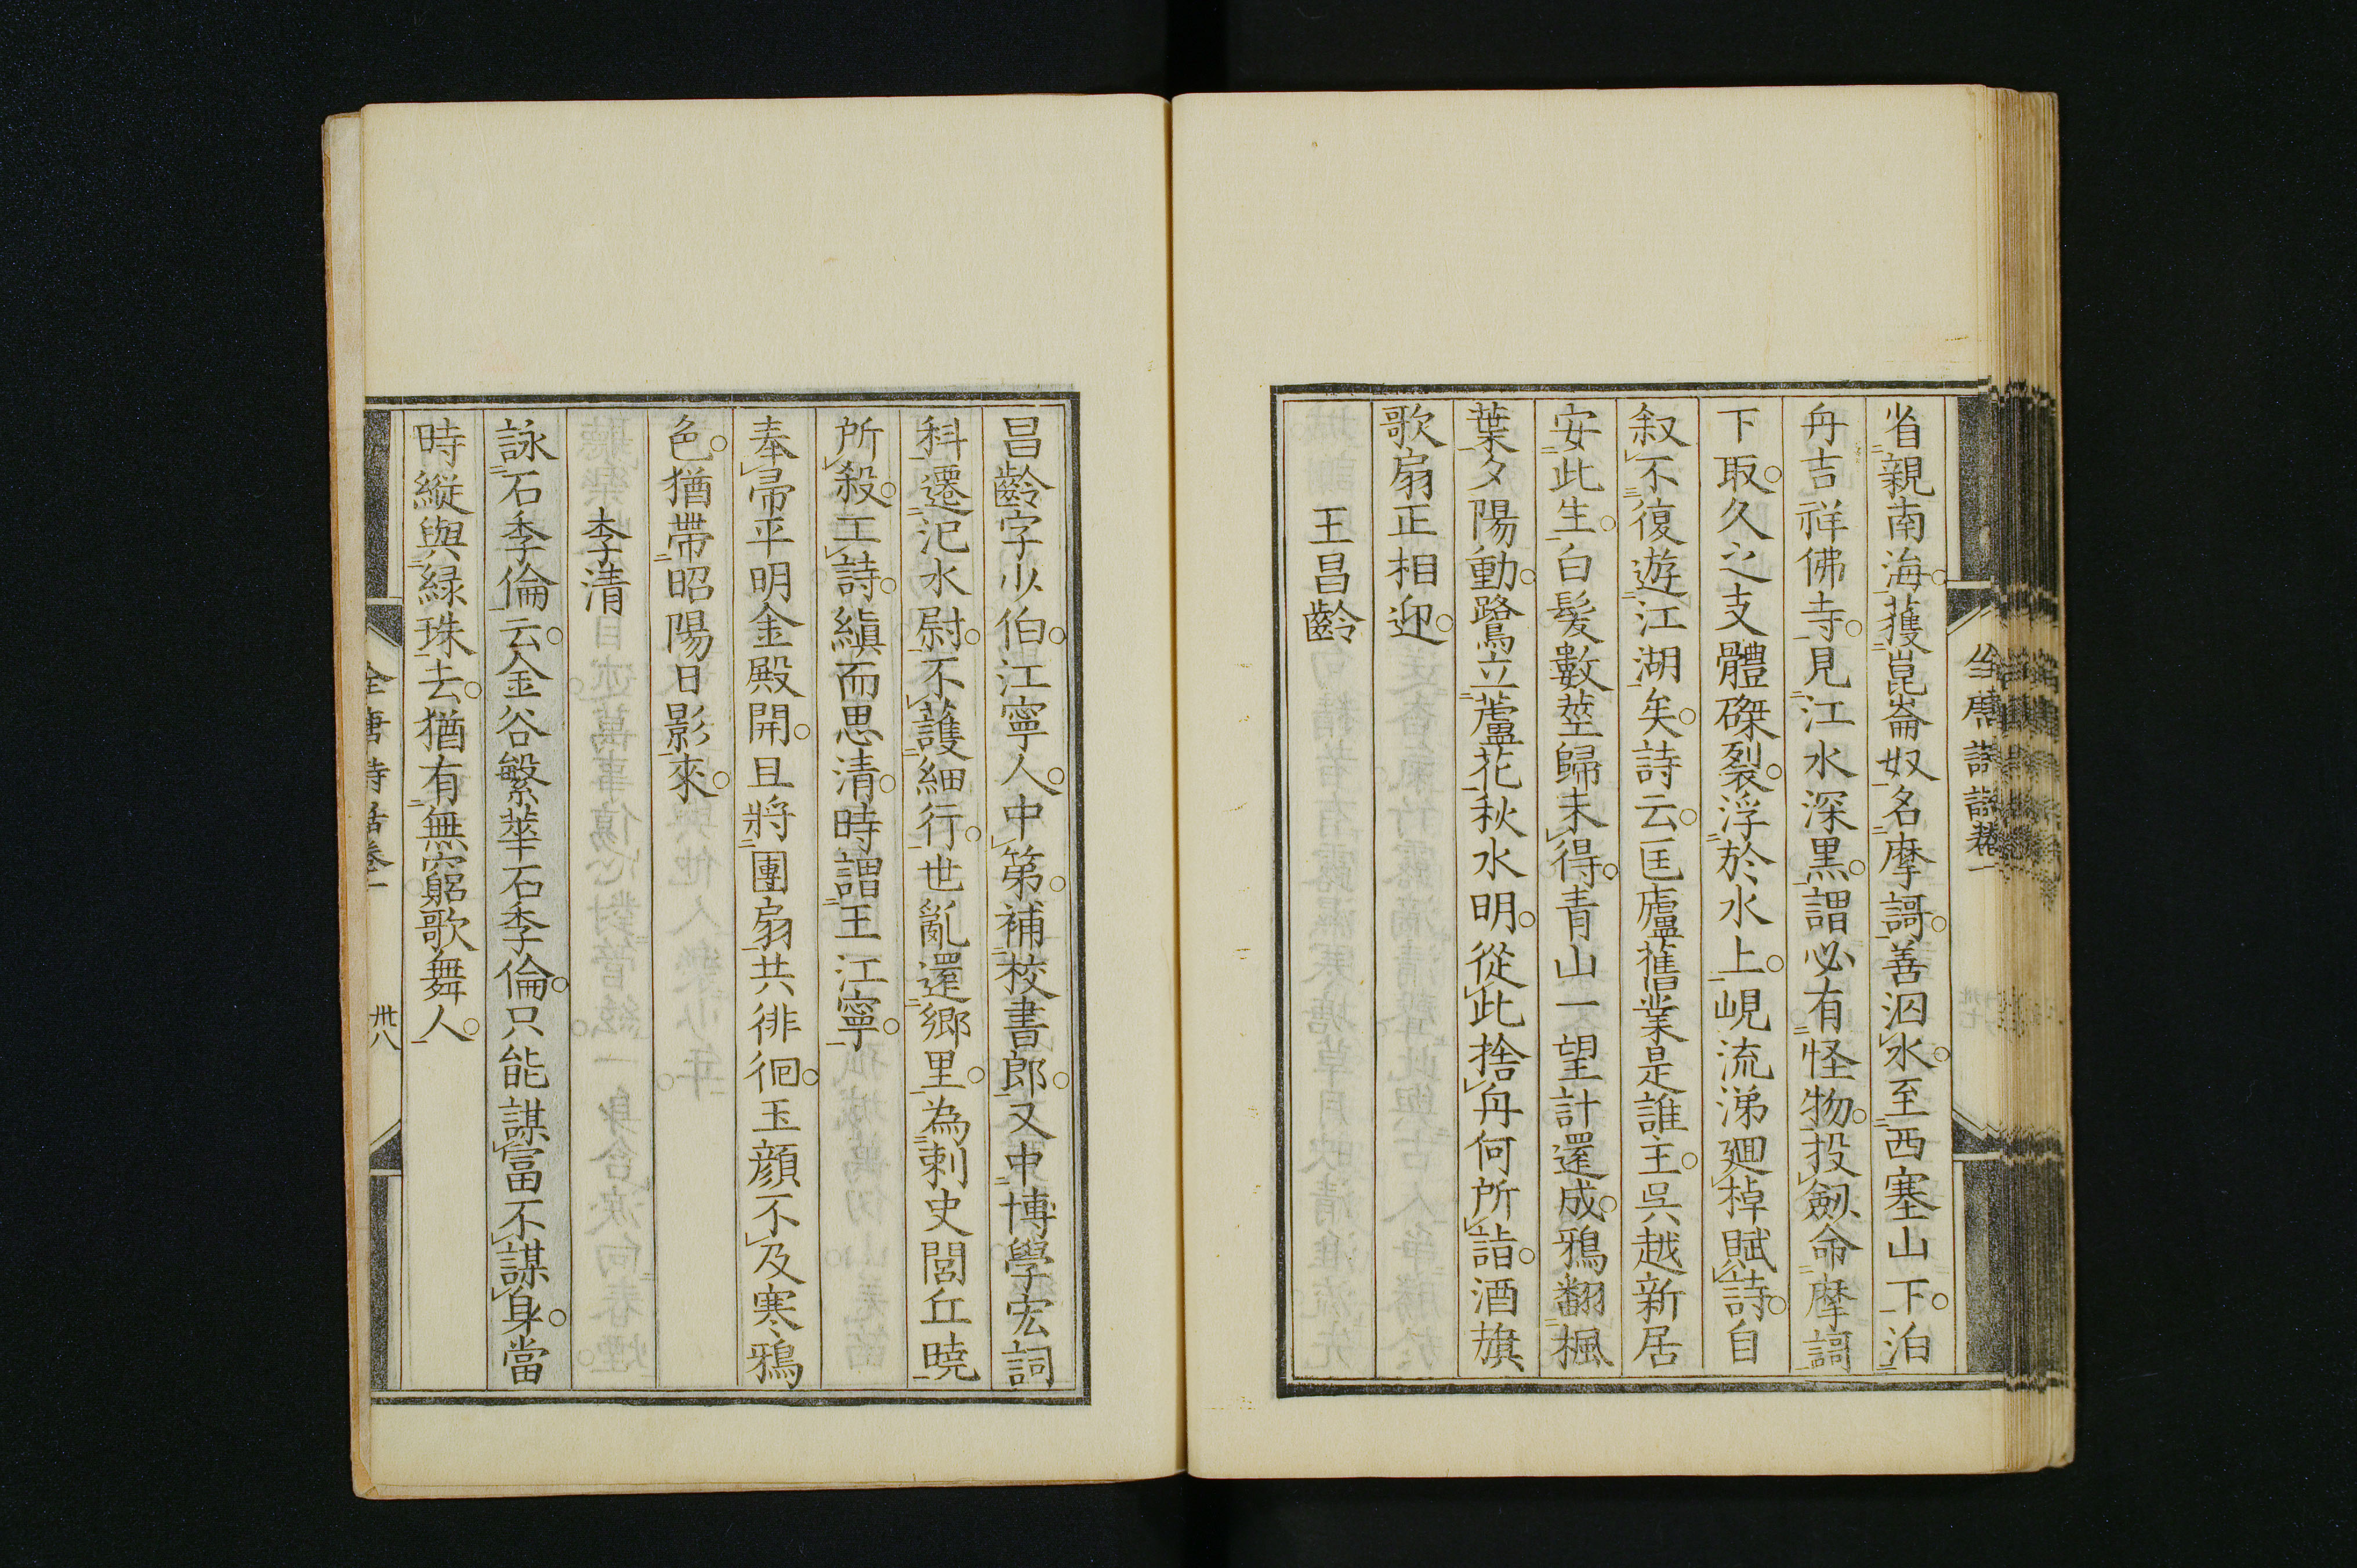 省親南海。獲崑崙奴名摩謌。善泅水。至西塞山下。泊
舟吉祥佛寺。見江水深黒。謂必有怪物。投劔命摩謌
下取。久之支體磔裂。浮於水上。峴流涕廻棹賦詩。自
叙不復遊江湖矣。詩云。匡廬舊業是誰主。呉越新居
安此生。白髪數莖歸未得。青山一望計還成。鴉翻楓
葉夕陽動。鷺立蘆花秋水明。從此捨舟何所詣。酒旗
歌扇正相迎。
王昌齡
全唐詩話卷一
昌齡字少伯。江寧人。中第。補校書郎。又中博學宏詞
科。遷汜水尉。不護細行。世亂還郷里。為刺史閭丘曉
所殺。工詩。縝而思清。時謂王江寧。
奉帚平明金殿開。且將團扇共徘徊。玉顔不及寒鴉
色。猶帶昭陽日影來。
李清
詠石季倫云。金谷繁華石季倫。只能謀富不謀身。當
時縱與緑珠去。猶有無窮歌舞人。
全唐詩話卷一
卅八